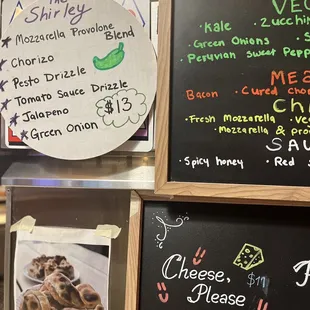 The
Shirley
Mozzarella Provolone
Blend
Chorizo
Pesto Drizzle
Tomato Sauce Drizzle
Jalapeno
Green Onion
$13
VE
Kale
Zucchin
Green Onions
Peruvian Sweet Pepp
MEA
Bacon
Cured chor
CH
Fresh Mozzarella
Ve
Mozzarella & pro
SAU
Spicy honey
Red
Cheese,
Please
$11